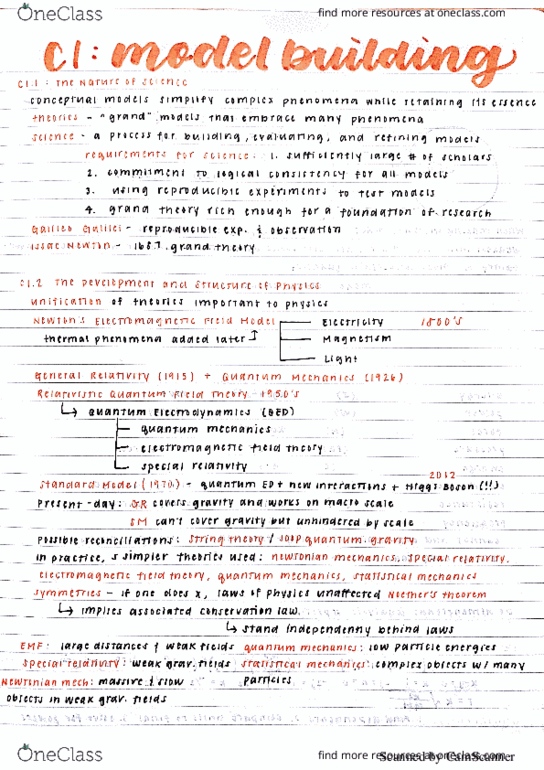 OneClass
find more resources at oneclass.com
C1: model building
C1.1: The Nature of Science
conceptual models simplify complex phenomena while retaining its essence
theories - "grand" models that embrace many phenomena
science - a process for building, evaluating, and refining models
requirements for science: 1. sufficiently large # of scholars
2. commitment to logical consistency for all models
3. using reproducible experiments to test models
4. grand theory rich enough for a foundation of research
Galileo Galilei - reproducible exp. & observation
Isaac Newton - 1687, grand theory
C1.2 The Development and Structure of Physics
unification of theories important to physics
Newton's Electromagnetic Field Model Electricity 1800's
thermal phenomena added later Magnetism
Light
General Relativity (1915) + Quantum Mechanics (1926)
Relativistic Quantum Field Theory - 1950's
↳ Quantum Electrodynamics (QED)
quantum mechanics
electromagnetic field theory
special relativity
2012
Standard Model (1970) - quantum ED + new interactions + Higgs Boson (!!)
Present-day: GR covers gravity and works on macro scale
SM can't cover gravity but unhindered by scale
Possible reconciliations: string theory / loop quantum gravity
in practice, 5 simpler theories used: newtonian mechanics, special relativity,
electromagnetic field theory, quantum mechanics, statistical mechanics
symmetries - if one does x, laws of physics unaffected Noether's theorem
↳ implies associated conservation law
↳ stand independenny behind laws
EMF: large distances & weak fields quantum mechanics: low particle energies
special relativity: weak grav. fields statistical mechanics: complex objects w/ many
Newtonian mech: massive & slow particles
objects in weak grav. fields
OneClass
find more resources at oneclass.com
Scanned by CamScanner